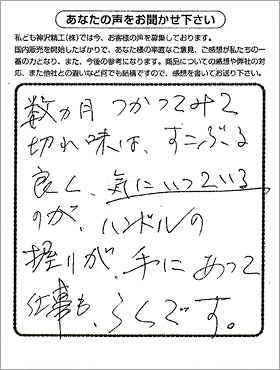 あなたの声をお聞かせ下さい
私ども神沢精工(株)では今、お客様の声を募集しております。
国内販売を開始したばかりで、あなた様の率直なご意見、ご感想が私たちの一
番の力となり、また、今後の参考になります。商品についての感想や弊社の対
応、また他社との違いなど何でも結構ですので、感想を書いてお送り下さい。
数ヵ月つかってみて
切れ味は、すこぶる
良く、気にいっている
のが、ハンドルの
握りが、手にあって
仕事も、らくです。